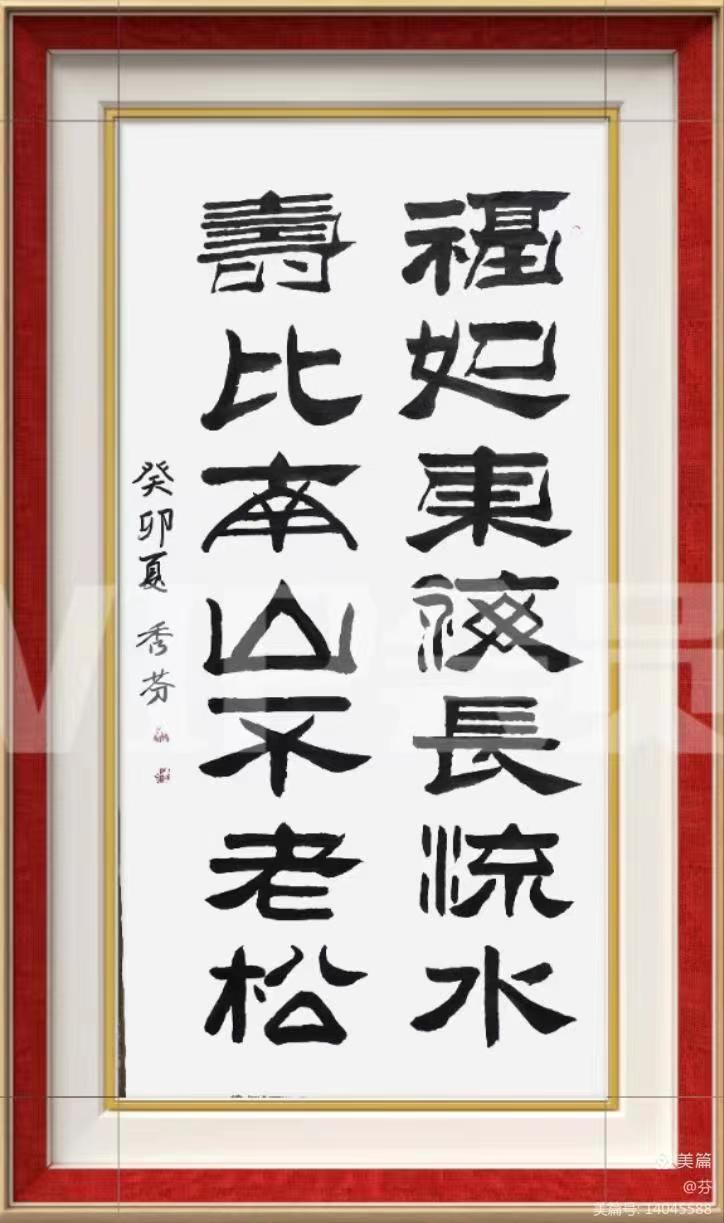 福如東海長流水
壽比南山不老松
癸卯夏 秀芬
VIP会员
美篇
@芬
美篇号: 14045588